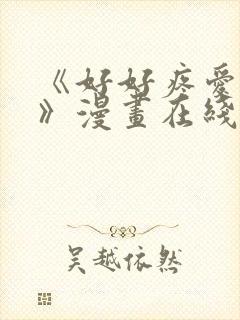 《好好疼愛
》漫畫在綫
吴越依然